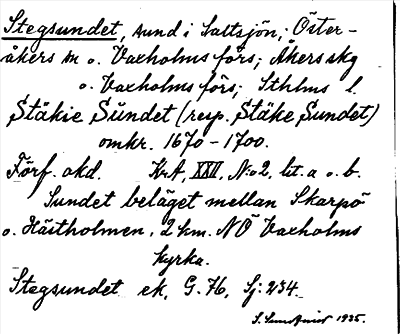 Stegsundet, sund i Saltsjön; Öster-
åkers sn o. Vaxholms förs; Åkers skg
o. Vaxholms förs; Sthlms l.
Stäkie Sŭndet (resp. Stäke Sundet)
omkr. 1670-1700.
Förf. okd. KrA, XXV, N:o 2, lit. a o. b.
Sundet beläget mellan Skarpö
o. Hästholmen, 2 km. NÖ Vaxholms
kyrka.
Stegsundet ek. G. 76, Sj: 234.
S. 1935.